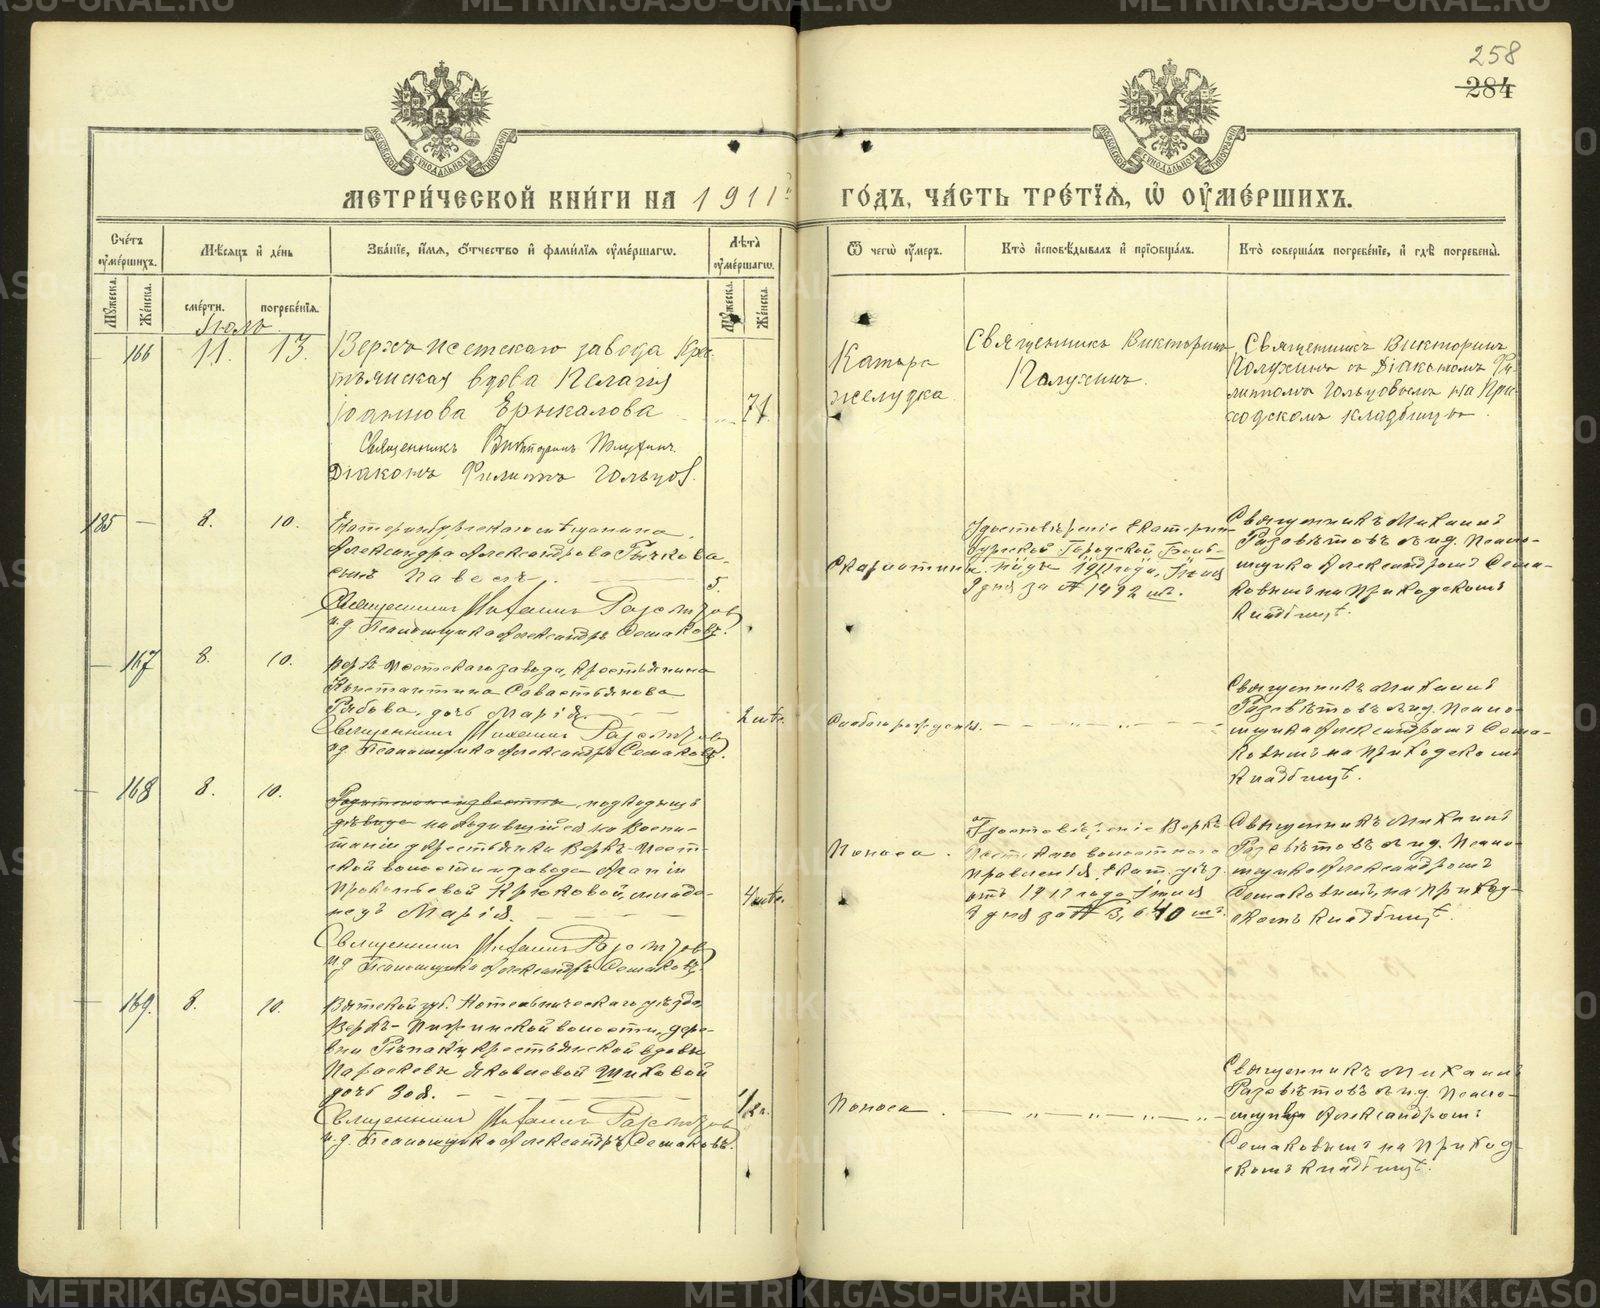 METRIKI.GASO-URAL.RU
258
284
МЕТРИ́ЧЕСКОЙ КНИ́ГИ НА 1911 ГО́ДЪ, ЧА́СТЬ ТРЕ́ТІѦ, Ѡ ОУМЕ́РШИХЪ.
Сче́тъ оуме́ршихъ.
Мѣ́сяцъ и день
Зва́ніе, и́мя, о́тчество и фами́лія оуме́ршагѡ.
Лѣ́та оуме́ршагѡ.
Ѿ чегѡ̀ оу́меръ.
Кто̀ исповѣ́дывалъ и пріѡбща́лъ.
Кто̀ соверша́лъ погребе́ніе, и гдѣ̀ погребены̀.
Мꙋ́жеска.
Же́нска.
сме́рти.
погребе́нія.
Мꙋ́жеска.
Же́нска.
Іюль
166 11. 13.
Верхъ Исетскаго завода Кре-
стьянская вдова Пелагія
Іоаннова Ерыкалова
71.
Священникъ Викторинъ Полухинъ.
Діаконъ Филиппъ Гольцов.
Катара
желудка
Священникъ Викторинъ
Полухинъ.
Священникъ Викторинъ
Полухинъ съ Діакономъ Фи-
липпомъ Гольцовымъ на При-
ходскомъ кладбищѣ
185 — 8. 10.
Екатеринбургскаго мѣщанина
Александра Александрова Рычкова
сынъ Павелъ.
5.
Священникъ Михаилъ
и.д. Псаломщика Александръ Семаковъ.
Скарлатины.
Удостовѣреніе Екатерин-
бургской Городской
1911 года, Іюля
9 дня за № 1492
Священникъ Михаилъ
и.д. Псалом-
щика Александромъ Сема-
ковымъ на Приходскомъ
Кладбищѣ.
— 167 8. 10.
Верхъ-Исетскаго завода, крестьянина
Константина Савастьянова
Рябова, дочь Марія.
2 мѣс.
Священникъ Михаилъ
и.д. Псаломщика Александръ Семаковъ.
Священникъ Михаилъ
и.д. Псалом-
щика Александромъ Сема-
ковымъ на Приходскомъ
Кладбищѣ.
168 8. 10.
находившійся на воспи-
таніи у крестьянки Верхъ-Исет-
ской волости и завода
Прокопьевой Крюковой, младе-
нецъ Марія.
4 мѣс.
Священникъ Михаилъ
и.д. Псаломщика Александръ Семаковъ.
Поноса.
Удостовѣреніе Верхъ-
Исетскаго волостного
правленія, Екат. уѣзд.
отъ 1911 года Іюля
9 дня за № 3,640
Священникъ Михаилъ
и.д. Псалом-
щика Александромъ
Семаковымъ, на Приход-
скомъ Кладбищѣ.
169. 8. 10.
Вятской губ. Котельническаго уѣзда,
Верхъ-Пижинской волости, дере-
вни крестьянской вдовы
Параскевы Яковлевой Шиховой
дочь Зоя.
1/2 г.
Священникъ Михаилъ
и.д. Псаломщика Александръ Семаковъ.
Поноса.
Священникъ Михаилъ
и.д. Псалом-
щика Александромъ
Семаковымъ на Приход-
скомъ Кладбищѣ.